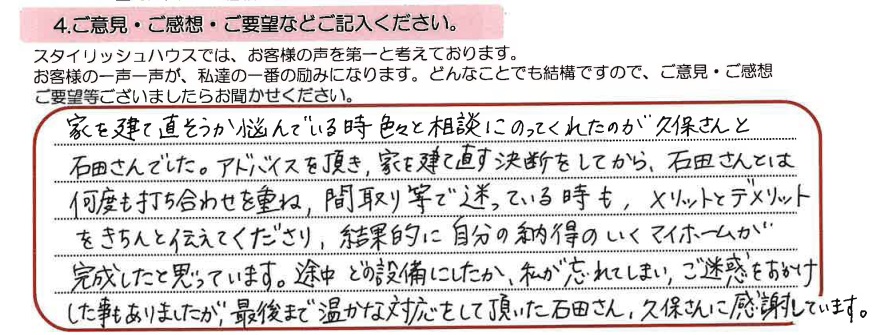 4.ご意見・ご感想・ご要望などご記入ください。
スタイリッシュハウスでは、お客様の声を第一と考えております。
お客様の一声一声が、私達の一番の励みになります。どんなことでも結構ですので、ご意見・ご感想
ご要望等ございましたらお聞かせください。
家を建て直そうか悩んでいる時色々と相談にのってくれたのが久保さんと
石田さんでした。アドバイスを頂き,家を建て直す決断をしてから、石田さんとは
何度も打ち合わせを重ね,間取り等で迷っている時も,メリットとデメリット
をきちんと伝えてくださり,結果的に自分の納得のいくマイホームが
完成したと思っています。途中どの設備にしたか、私が忘れてしまい,ご迷惑をおかけ
した事もありましたが,最後まで温かな対応をして頂いた石田さん,久保さんに感謝しています。